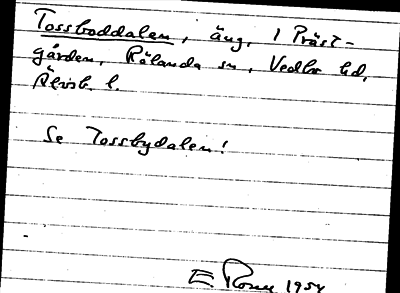 Tossboddalen, äng, 1 Präst-
gården, Rölanda sn, Vedbo hd,
Älvsb. l.
Se Tossbydalen!
E Rosell 1954